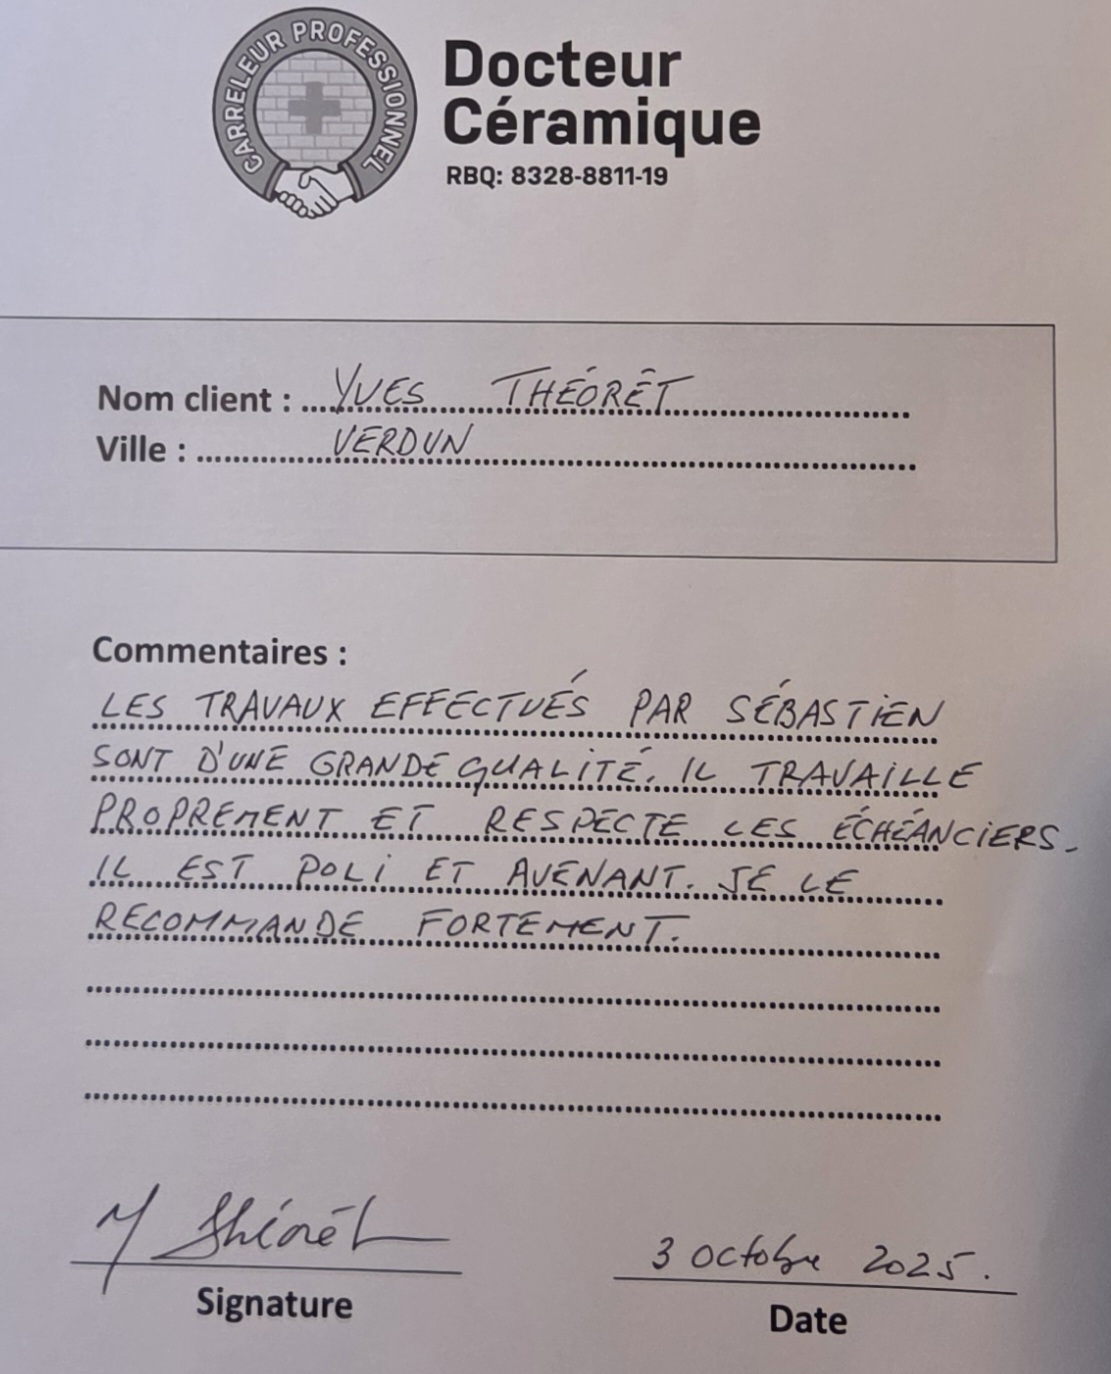 CARRELEUR PROFESSIONNEL
Docteur
Céramique
RBQ: 8328-8811-19
Nom client : YVES THÉORÊT
Ville : VERDUN
Commentaires :
LES TRAVAUX EFFECTUÉS PAR SÉBASTIEN
SONT D'UNE GRANDE QUALITÉ. IL TRAVAILLE
PROPREMENT ET RESPECTE LES ÉCHÉANCIERS.
IL EST POLI ET AVENANT. JE LE
RECOMMANDE FORTEMENT.
Y Théorêt
3 octobre 2025.
Signature
Date